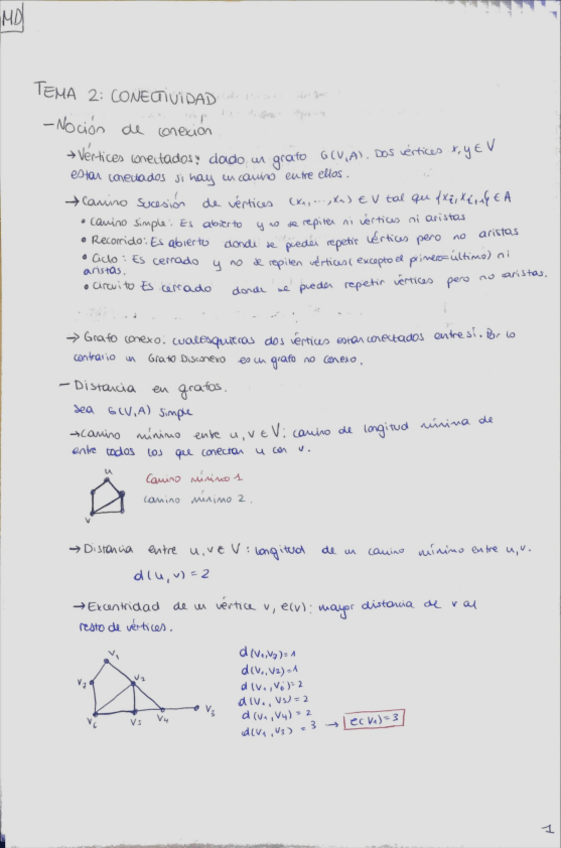 MD
TEMA 2: CONECTIVIDAD
- Noción de conexión
→ Vértices conectados: dado un grafo G(V,A). Dos vértices x,y ∈ V
están conectados si hay un camino entre ellos.
→ Camino sucesión de vértices (x₁,...,xₙ) ∈ V tal que {xᵢ,xᵢ₊₁} ∈ A
• Camino simple: Es abierto y no se repiten ni vértices ni aristas
• Recorrido: Es abierto donde se pueden repetir vértices pero no aristas
• Ciclo: Es cerrado y no se repiten vértices (excepto el primero=último) ni
aristas.
• Circuito Es cerrado donde se pueden repetir vértices pero no aristas.
→ Grafo conexo: cualesquieras dos vértices están conectados entre sí. Por lo
contrario un Grafo Disconexo es un grafo no conexo.
- Distancia en grafos.
Sea G(V,A) simple
→ Camino mínimo entre u,v ∈ V: camino de longitud mínima de
entre todos los que conectan u con v.
u
Camino mínimo 1
Camino mínimo 2.
v
→ Distancia entre u,v ∈ V: longitud de un camino mínimo entre u,v.
d(u,v) = 2
→ Excentridad de un vértice v, e(v): mayor distancia de v al
resto de vértices.
V₁
V₂
V₇
V₆
V₅
V₄
V₃
d(V₁,V₇)=1
d(V₁,V₂)=1
d(V₁,V₆)=2
d(V₁,V₅)=2
d(V₁,V₄)=2
d(V₁,V₃)=3 → e(V₁)=3
1